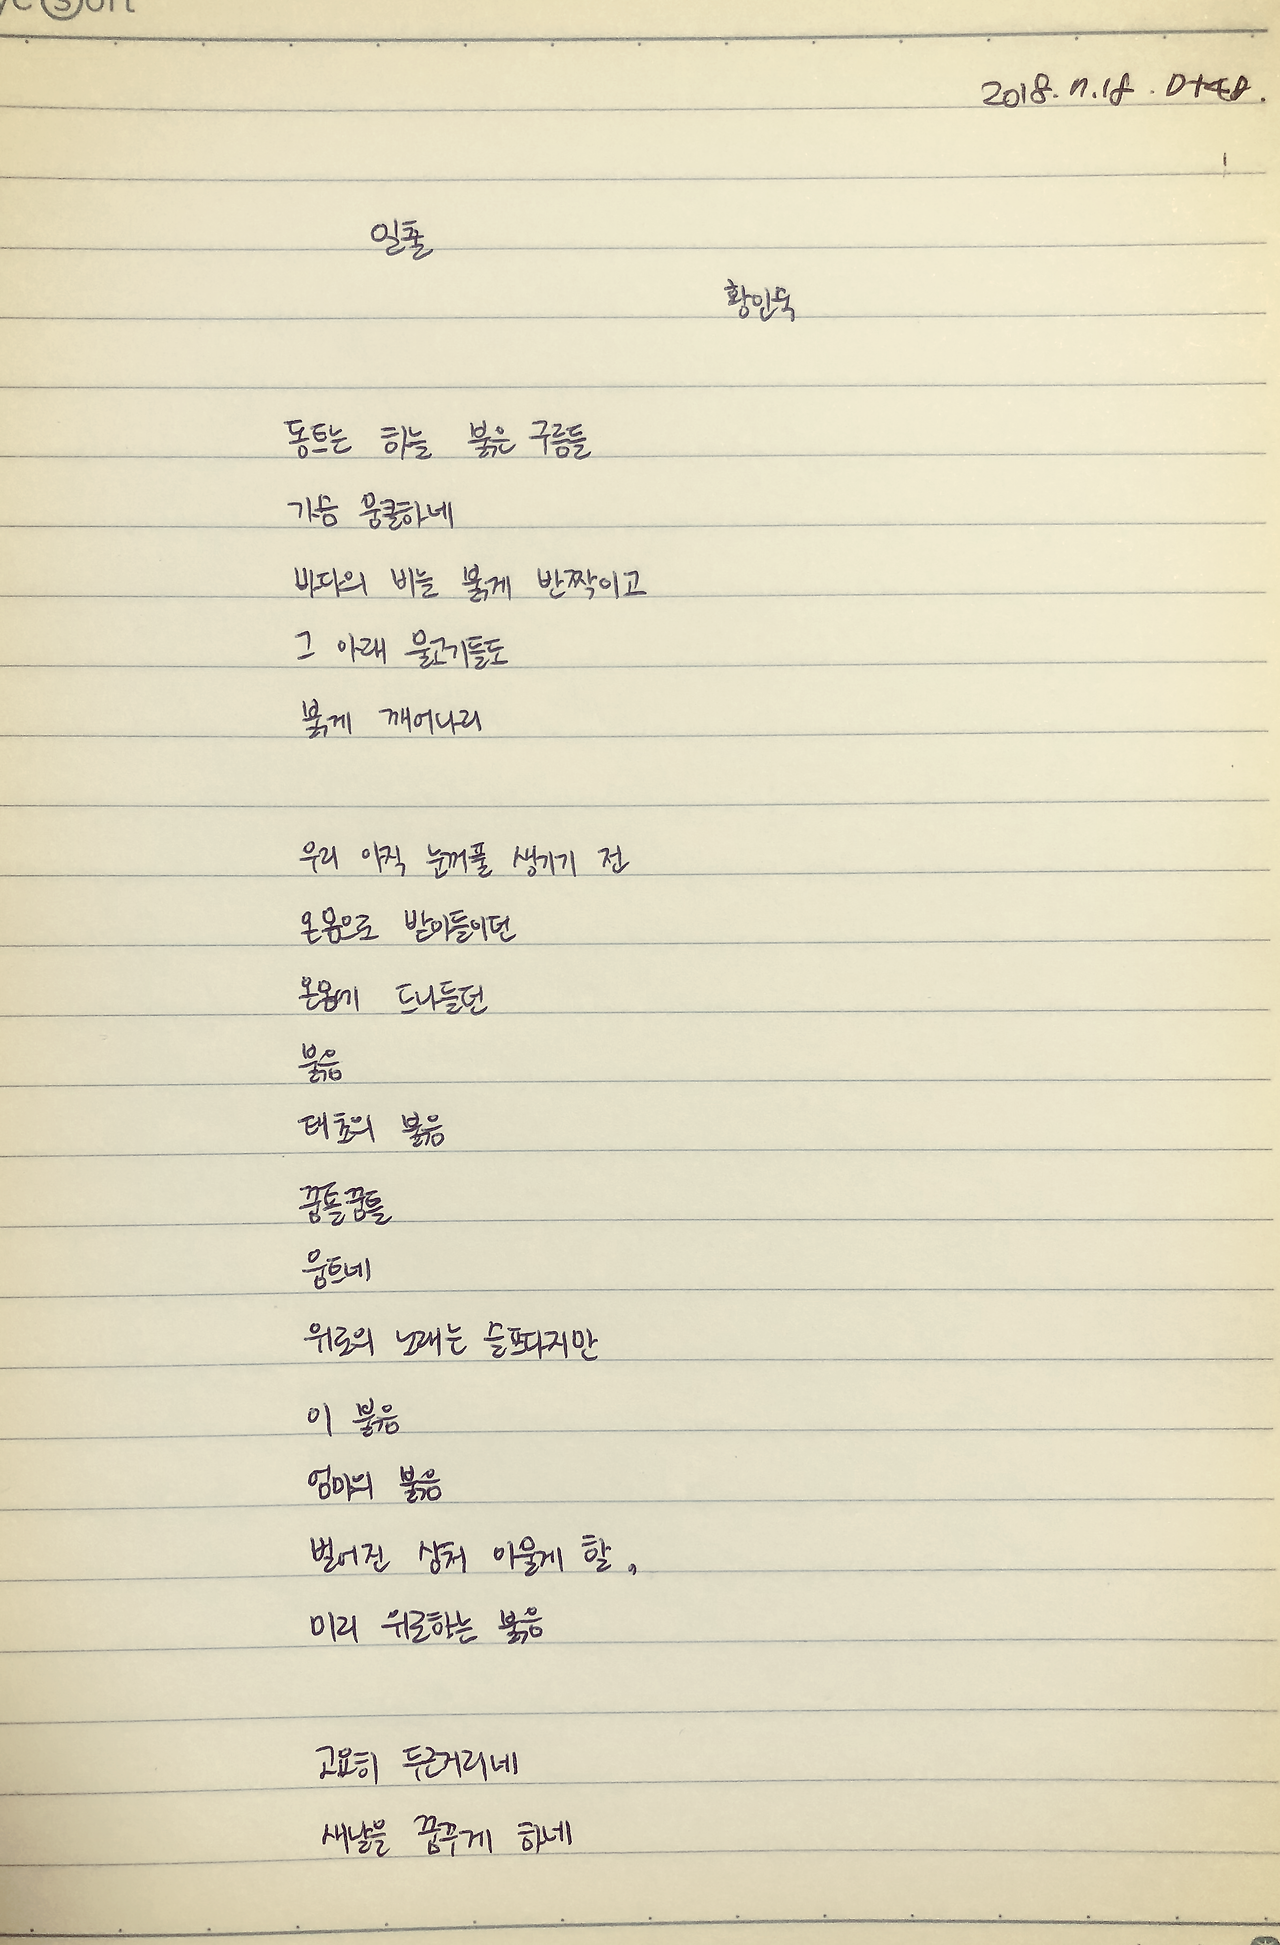 2018. 7. 18. D+48.
일출
황인숙
동트는 하늘 붉은 구름들
가슴 뭉클하네
바다의 비늘 붉게 반짝이고
그 아래 물고기들도
붉게 깨어나리
우리 아직 눈꺼풀 생기기 전
온몸으로 받아들이던
온몸에 드나들던
붉음
태초의 붉음
꿈틀꿈틀
움트네
위로의 노래는 슬프다지만
이 붉음
엄마의 붉음
벌어진 상처 아물게 할,
미리 위로하는 붉음
고요히 두근거리네
새날을 꿈꾸게 하네